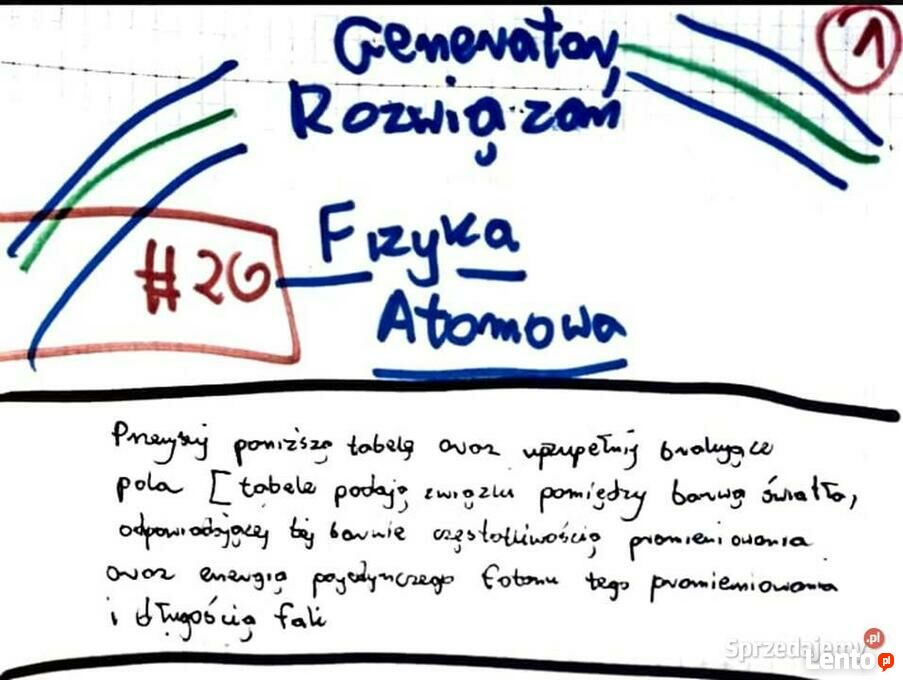 Generator
Rozwiązań
1
#20
Fizyka
Atomowa
Przerysuj poniższą tabelę oraz uzupełnij brakujące
pola [tabele podają związku pomiędzy barwą światła,
odpowiadającej tej barwie częstotliwością promieniowania
oraz energią pojedynczego fotonu tego promieniowania
i długością fali
Sprzedajemy.pl
Lento.pl